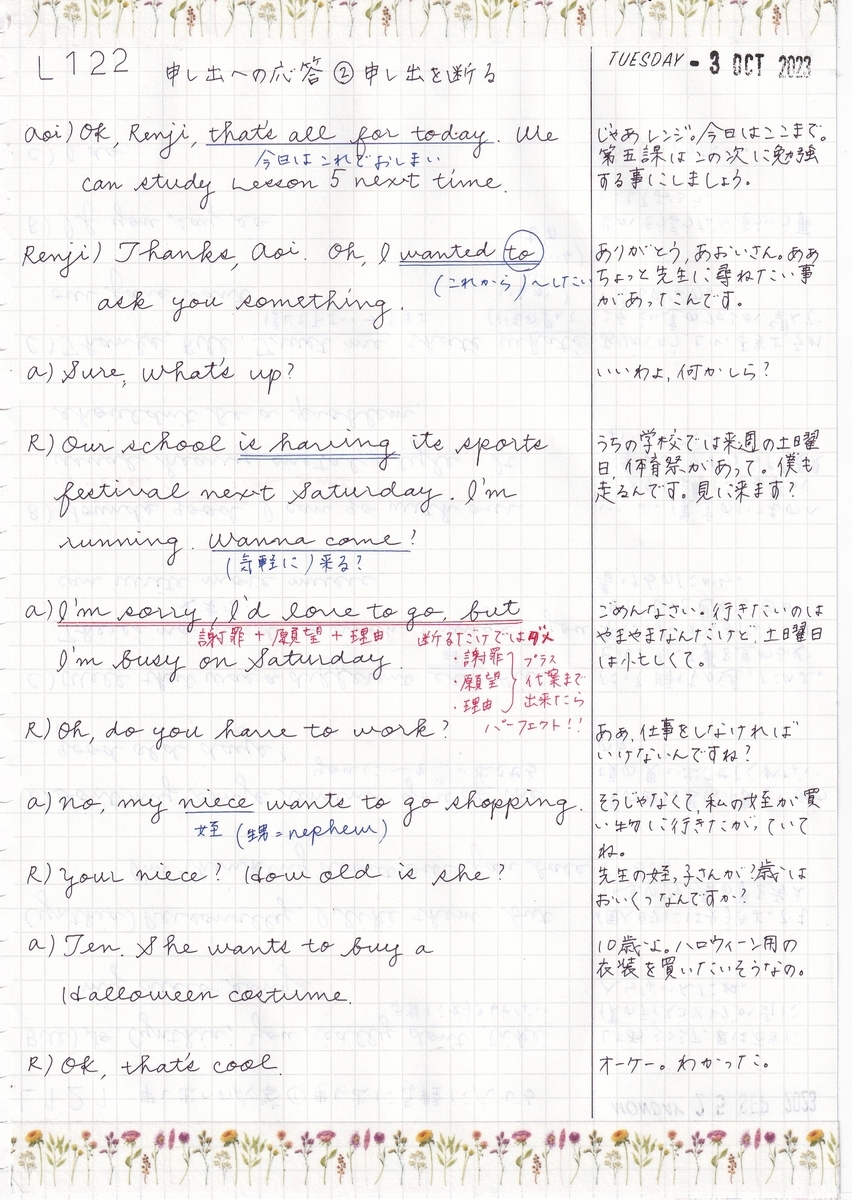 L122 申し出への応答② 申し出を断る
TUESDAY - 3 OCT 2023
Aoi) OK, Renji, that's all for today. We
今日はこれでおしまい
can study Lesson 5 next time.
じゃあ レンジ。今日はここまで。
第五課は この次に勉強
する事にしましょう。
Renji) Thanks, Aoi. Oh, I wanted to
(これから)〜したい
ask you something.
ありがとう, あおいさん。ああ
ちょっと先生に尋ねたい事
があったんです。
a) Sure, what's up?
いいわよ, 何かしら?
R) Our school is having its sports
festival next Saturday. I'm
running. Wanna come?
(気軽に)来る?
うちの学校では来週の土曜
日, 体育祭があって。僕も
走るんです。見に来ます?
a) I'm sorry, I'd love to go, but
謝罪 + 願望 + 理由
I'm busy on Saturday.
断るだけではダメ
・謝罪
・願望
・理由
プラス
代案まで
出来たら
パーフェクト!!
ごめんなさい。行きたいのは
やまやまなんだけど, 土曜日
は忙しくて。
R) Oh, do you have to work?
ああ, 仕事をしなければ
いけないんですね?
a) No, my niece wants to go shopping.
姪 (甥=nephew)
そうじゃなくて, 私の姪が買
い物に行きたがっていて
ね。
R) Your niece? How old is she?
先生の姪っ子さんが? 歳は
おいくつなんですか?
a) Ten. She wants to buy a
Halloween costume.
10歳よ。ハロウィーン用の
衣装を買いたいそうなの。
R) OK, that's cool.
オーケー。わかった。